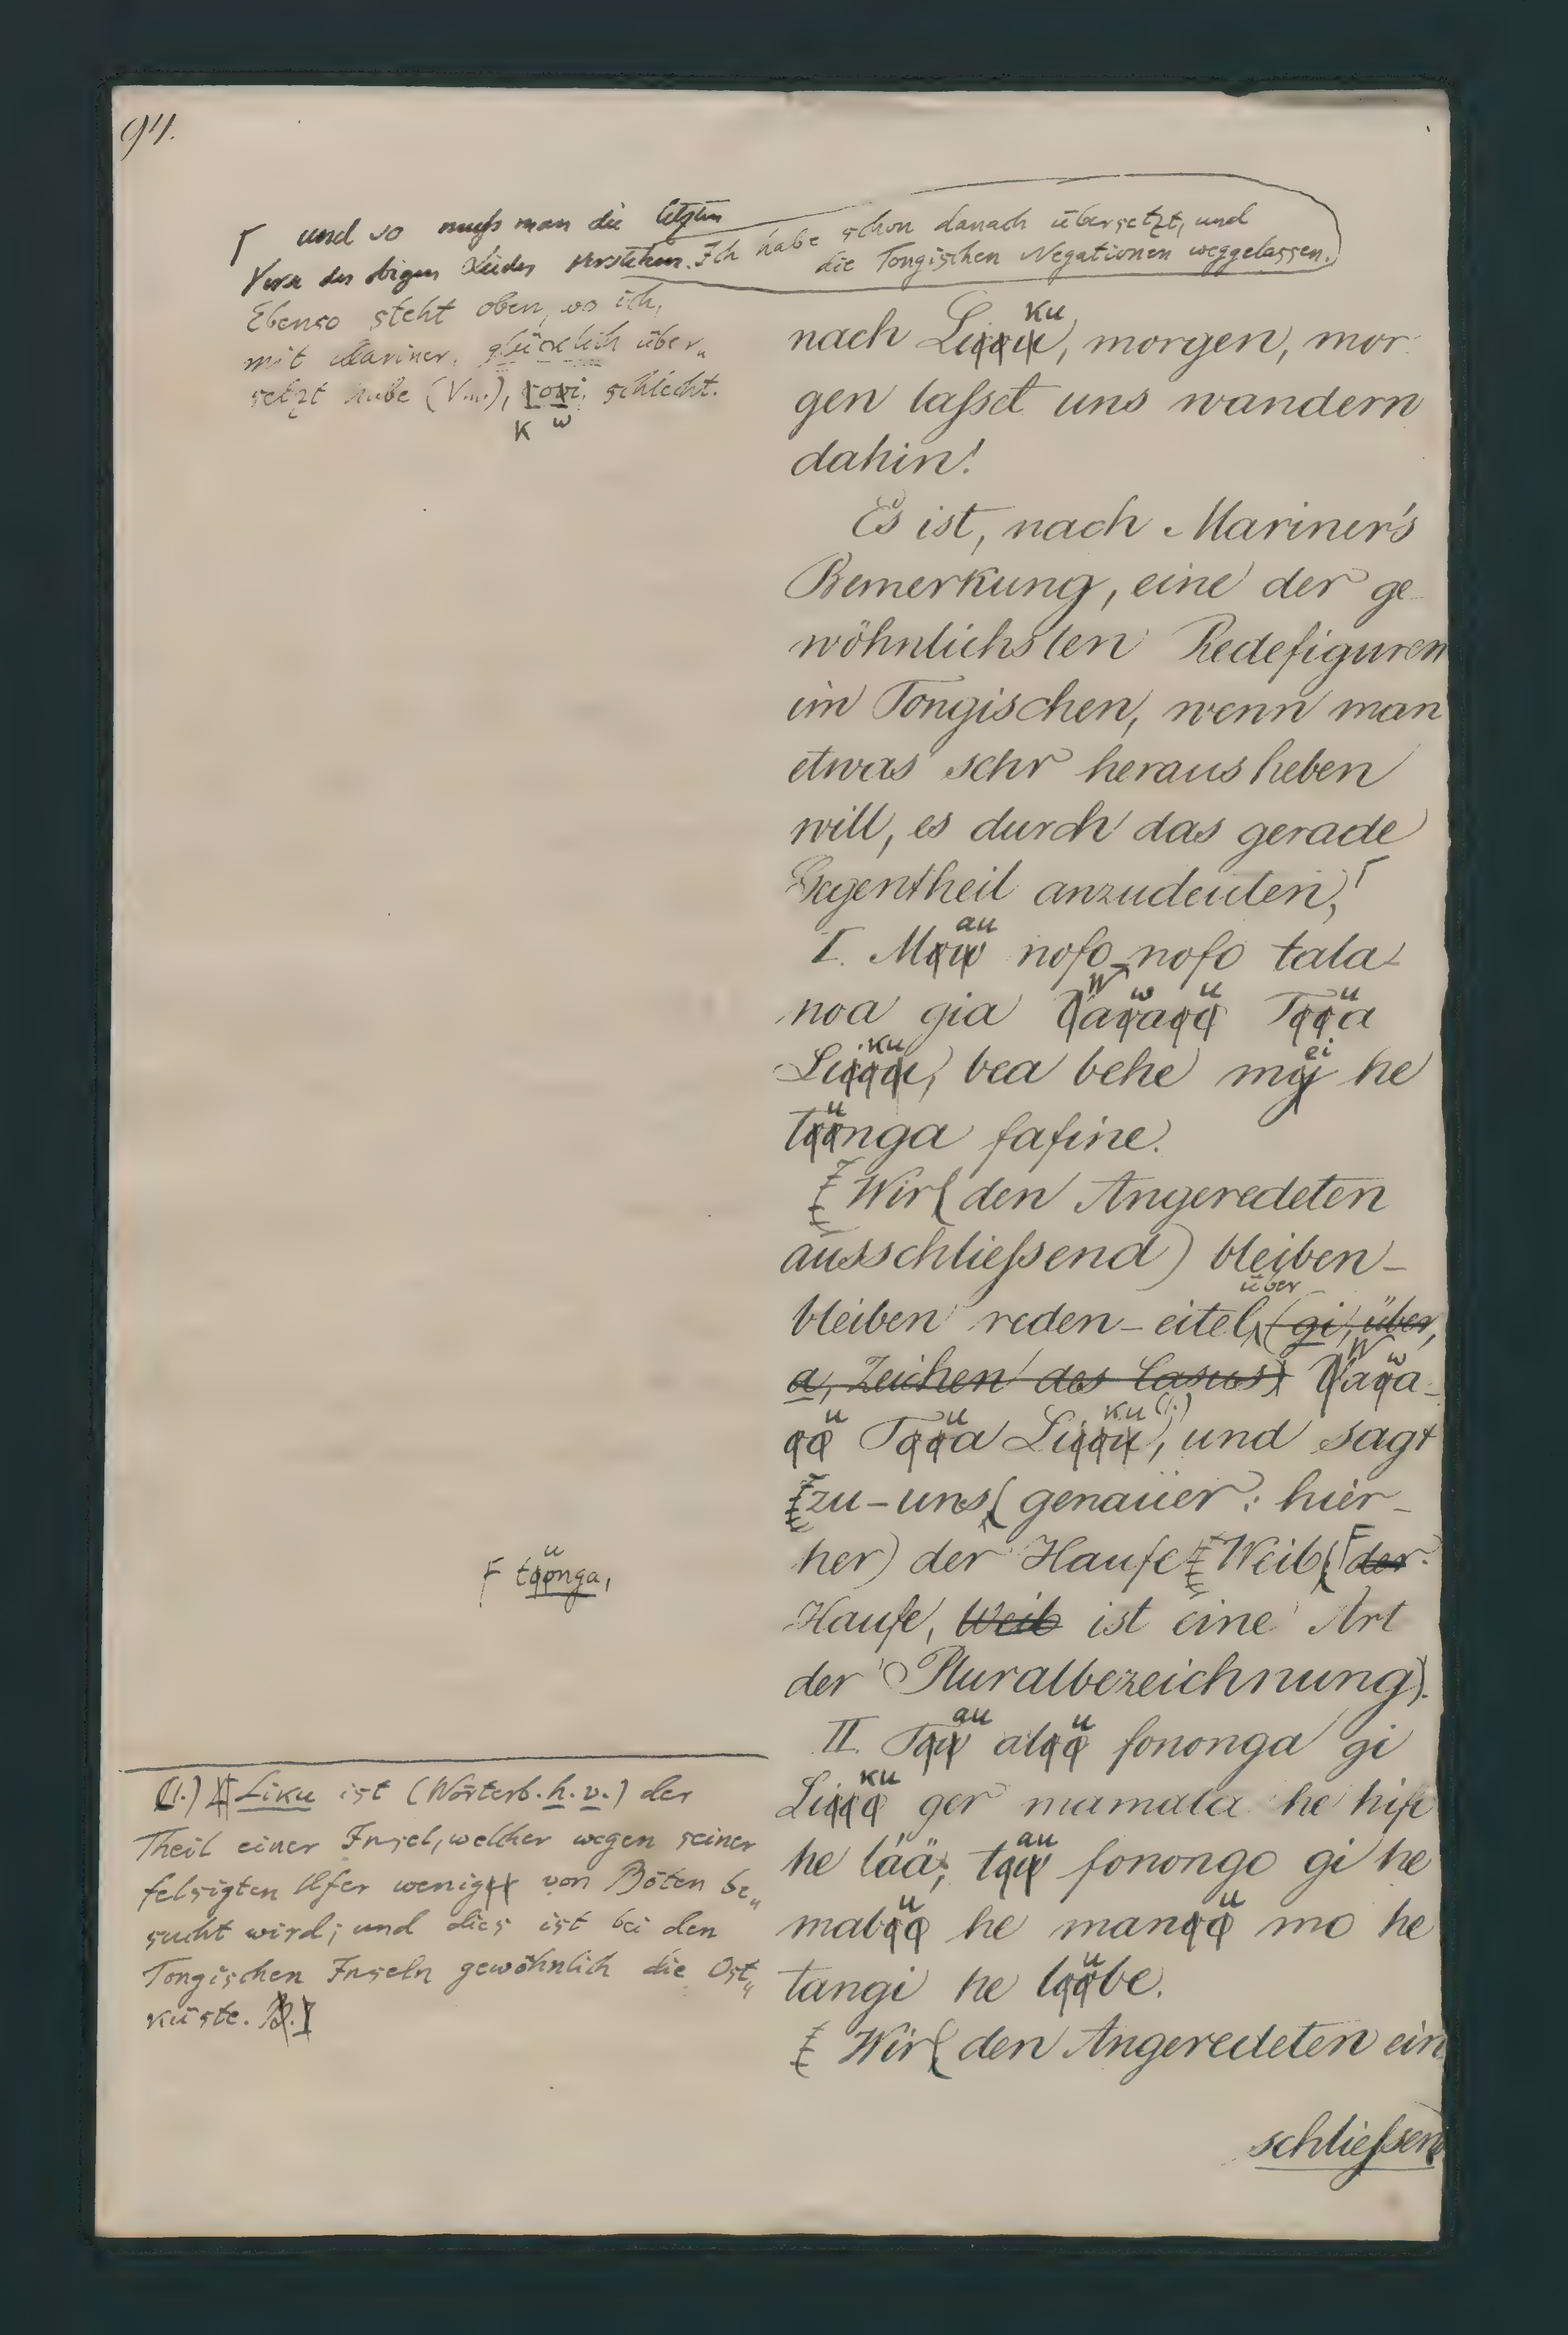 94.
⌈ und so muſs man die letzten
Verse des obigen Liedes verstehen. Ich habe schon danach übersetzt, und
die Tongischen Negationen weggelassen.
Ebenso steht oben, wo ich,
mit Mariner, glücklich über„
setzt habe (V.III.), kowi, schlecht.
nach Liku, morgen, mor-
gen laſset uns wandern
dahin!
Es ist, nach Mariner's
Bemerkung, eine der ge-
wöhnlichsten Redefiguren
im Tongischen, wenn man
etwas sehr herausheben
will, es durch das gerade
Gegentheil anzudeuten,⌈
I. Mau nofo-nofo tala-
noa gia Wawaü Tüa
Liku, bea behe mei he
tünga fafine.
Wir (den Angeredeten
ausschlieſsend) bleiben-
bleiben reden-eitel über (gi, über,
a, Zeichen des Casus) Wawa-
ü Tüa Liku (1.), und sagt
zu-uns (genauer: hier-
her) der Haufe Weib (⌈ der
Haufe, Weib ist eine Art
der Pluralbezeichnung).
F tünga,
II. Tau alü fononga gi
Liku ger mamata he hifo
he lää; tau fonongo gi he
mabü he manü mo he
tangi he lübe.
Wir (den Angeredeten ein
schlieſsend
(1.) Liku ist (Wörterb. h. v.) der
Theil einer Insel, welcher wegen seiner
felsigten Ufer wenig von Böten be„
sucht wird; und dies ist bei den
Tongischen Inseln gewöhnlich die Ost„
küste. B.]